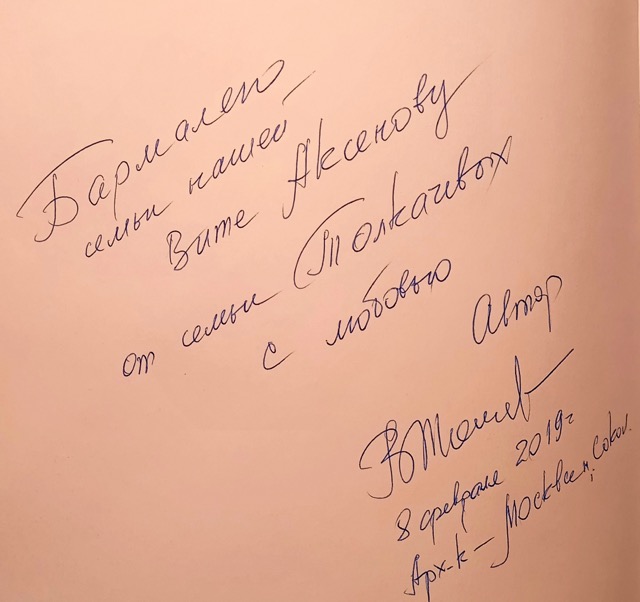 Бармалею
семьи нашей —
Вите Аксенову
от семьи Толкачевых
с любовью
Автор
8 февраля 2019 г
Арх-к — Москва